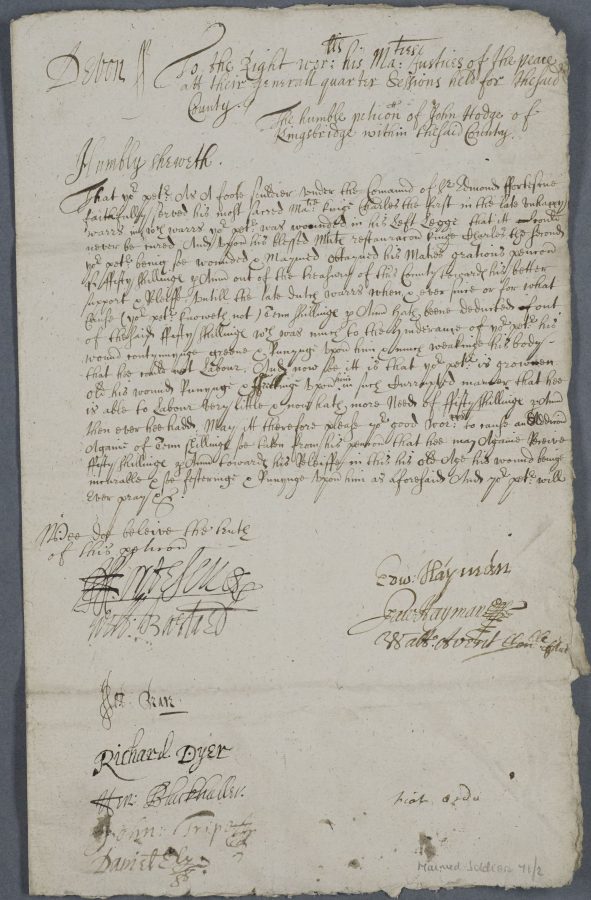 Devon ss To the Right wor:tts his Ma:ties Justices of the peace
att their generall quarter Sessions held for the said
County.
The humble peticon of John Hodge of
Kingsbridge within the said County.
Humbly sheweth.
That yor petr: As A foote souldier under the Comaund of Sr Edmond ffortescue
faithfully served his most sacred Matie kinge Charles the first in the late unhappy
warrs in wch warrs yor petr: was wounded in his left Legge that itt
never be cured And upon his blessed Matie restauracon kinge Charles the second
yor petr: being soe wounded & Maymed obtayned his Maties gratious pencon
of ffifty shillings p Annu out of the treasury of this County towards his better
support & Releiffe Untill the late dutch warrs when & ever since or for what
Cause (yor petr: knoweth not) Tenn shillings p Annu hath beene deducted out
of the said ffifty shillings wch was much to the hinderance of yor petr: his
wound contynuynge greene & Runynge upon him & much weakninge his body
that he could not Labour. And now soe itt is that yor petr: is growen
old his wounds Runynge & upon him in such Corrupted manner that hee
is able to Labour very little & now hath more Need of ffifty shillings p Ann
then ever hee hadd. May itt therefore please yor good worps to cause an
Againe of Tenn shillings be taken from his pencon that hee may Againe Receive
ffifty shillings p Annu towards his Releiffe in this his old Age his wound beinge
incurable & soe festeringe & Runynge upon him as aforesaid And yor petr: will
Ever pray &c
Wee doe beleive the truth
of this peticon
Edw: Hayman
Will: Bastard
Hayman
Richard Dyer
Wm: Blackhaller.
John: Tripe
Daniel
Maimed Soldiers 71/2